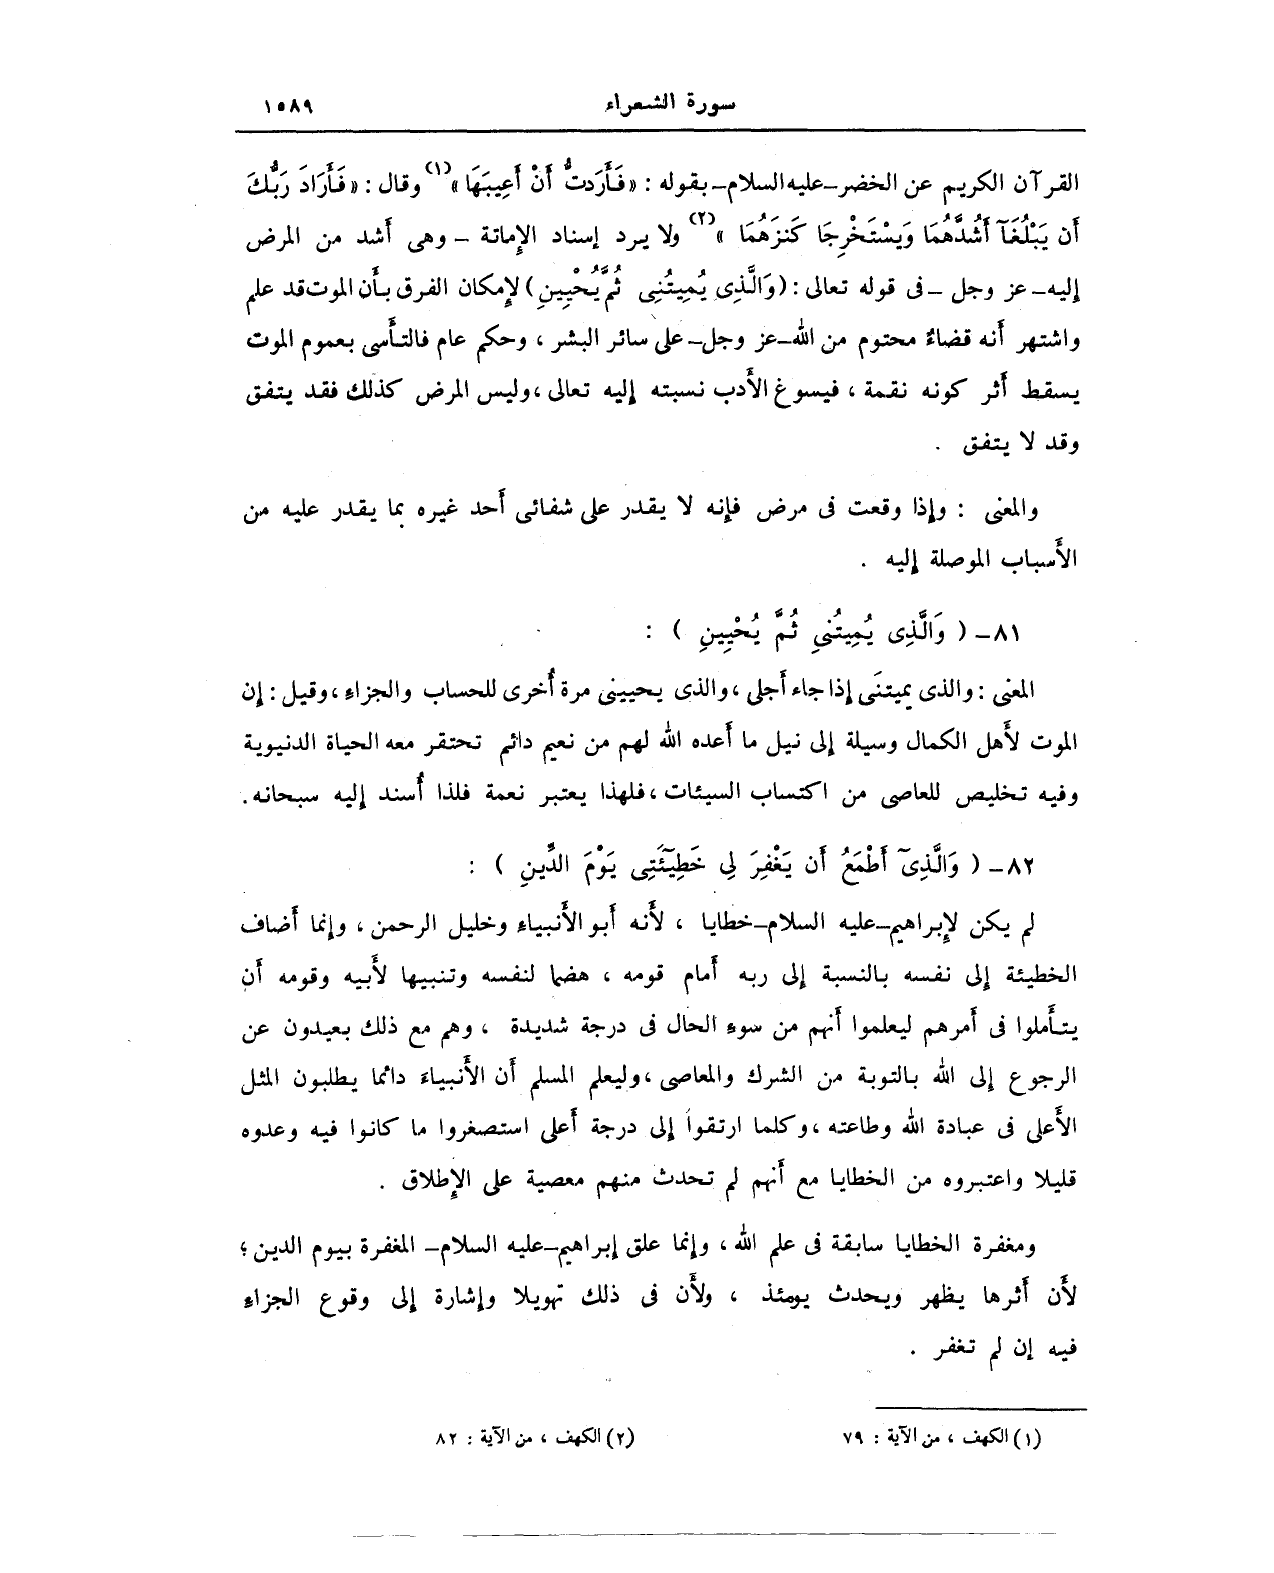 سورة الشعراء ١٥٨٩
القرآن الكريم عن الخضر-عليه السلام-بقوله : «فَأَرَدتُّ أَنْ أَعِيبَهَا»(١) وقال : «فَأَرَادَ رَبُّكَ
أَن يَبْلُغَآ أَشُدَّهُمَا وَيَسْتَخْرِجَا كَنزَهُمَا »(٢) ولا يرد إسناد الإماتة - وهى أشد من المرض
إليه- عز وجل - فى قوله تعالى : (وَالَّذِى يُمِيتُنِى ثُمَّ يُحْيِينِ) لإمكان الفرق بأن الموت قد علم
واشتهر أنه قضاءٌ محتوم من الله-عز وجل- على سائر البشر ، وحكم عام فالتأسى بعموم الموت
يسقط أثر كونه نقمة ، فيسوغ الأدب نسبته إليه تعالى ، وليس المرض كذلك فقد يتفق
وقد لا يتفق .
والمعنى : وإذا وقعت فى مرض فإنه لا يقدر على شفائى أحد غيره بما يقدر عليه من
الأسباب الموصلة إليه .
٨١- ( وَالَّذِى يُمِيتُنِي ثُمَّ يُحْيِينِ ) :
المعنى : والذى يميتنى إذا جاء أجلى ، والذى يحيينى مرة أُخرى للحساب والجزاء ، وقيل : إن
الموت لأهل الكمال وسيلة إلى نيل ما أعده الله لهم من نعيم دائم تحتقر معه الحياة الدنيوية
وفيه تخليص للعاصى من اكتساب السيئات ، فلهذا يعتبر نعمة فلذا أُسند إليه سبحانه .
٨٢- ( وَالَّذِىٓ أَطْمَعُ أَن يَغْفِرَ لِى خَطِيٓئَتِى يَوْمَ الدِّينِ ) :
لم يكن لإبراهيم-عليه السلام-خطايا ، لأنه أبو الأنبياء وخليل الرحمن ، وإنما أضاف
الخطيئة إلى نفسه بالنسبة إلى ربه أمام قومه ، هضما لنفسه وتنبيها لأبيه وقومه أن
يتأملوا فى أمرهم ليعلموا أنهم من سوء الحال فى درجة شديدة ، وهم مع ذلك بعيدون عن
الرجوع إلى الله بالتوبة من الشرك والمعاصى ، وليعلم المسلم أن الأنبياء دائما يطلبون المثل
الأعلى فى عبادة الله وطاعته ، وكلما ارتقوا إلى درجة أعلى استصغروا ما كانوا فيه وعدوه
قليلا واعتبروه من الخطايا مع أنهم لم تحدث منهم معصية على الإطلاق .
ومغفرة الخطايا سابقة فى علم الله ، وإنما علق إبراهيم-عليه السلام- المغفرة بيوم الدين ؛
لأن أثرها يظهر ويحدث يومئذ ، ولأن فى ذلك تهويلا وإشارة إلى وقوع الجزاء
فيه إن لم تغفر .
(١) الكهف ، من الآية : ٧٩ (٢) الكهف ، من الآية : ٨٢